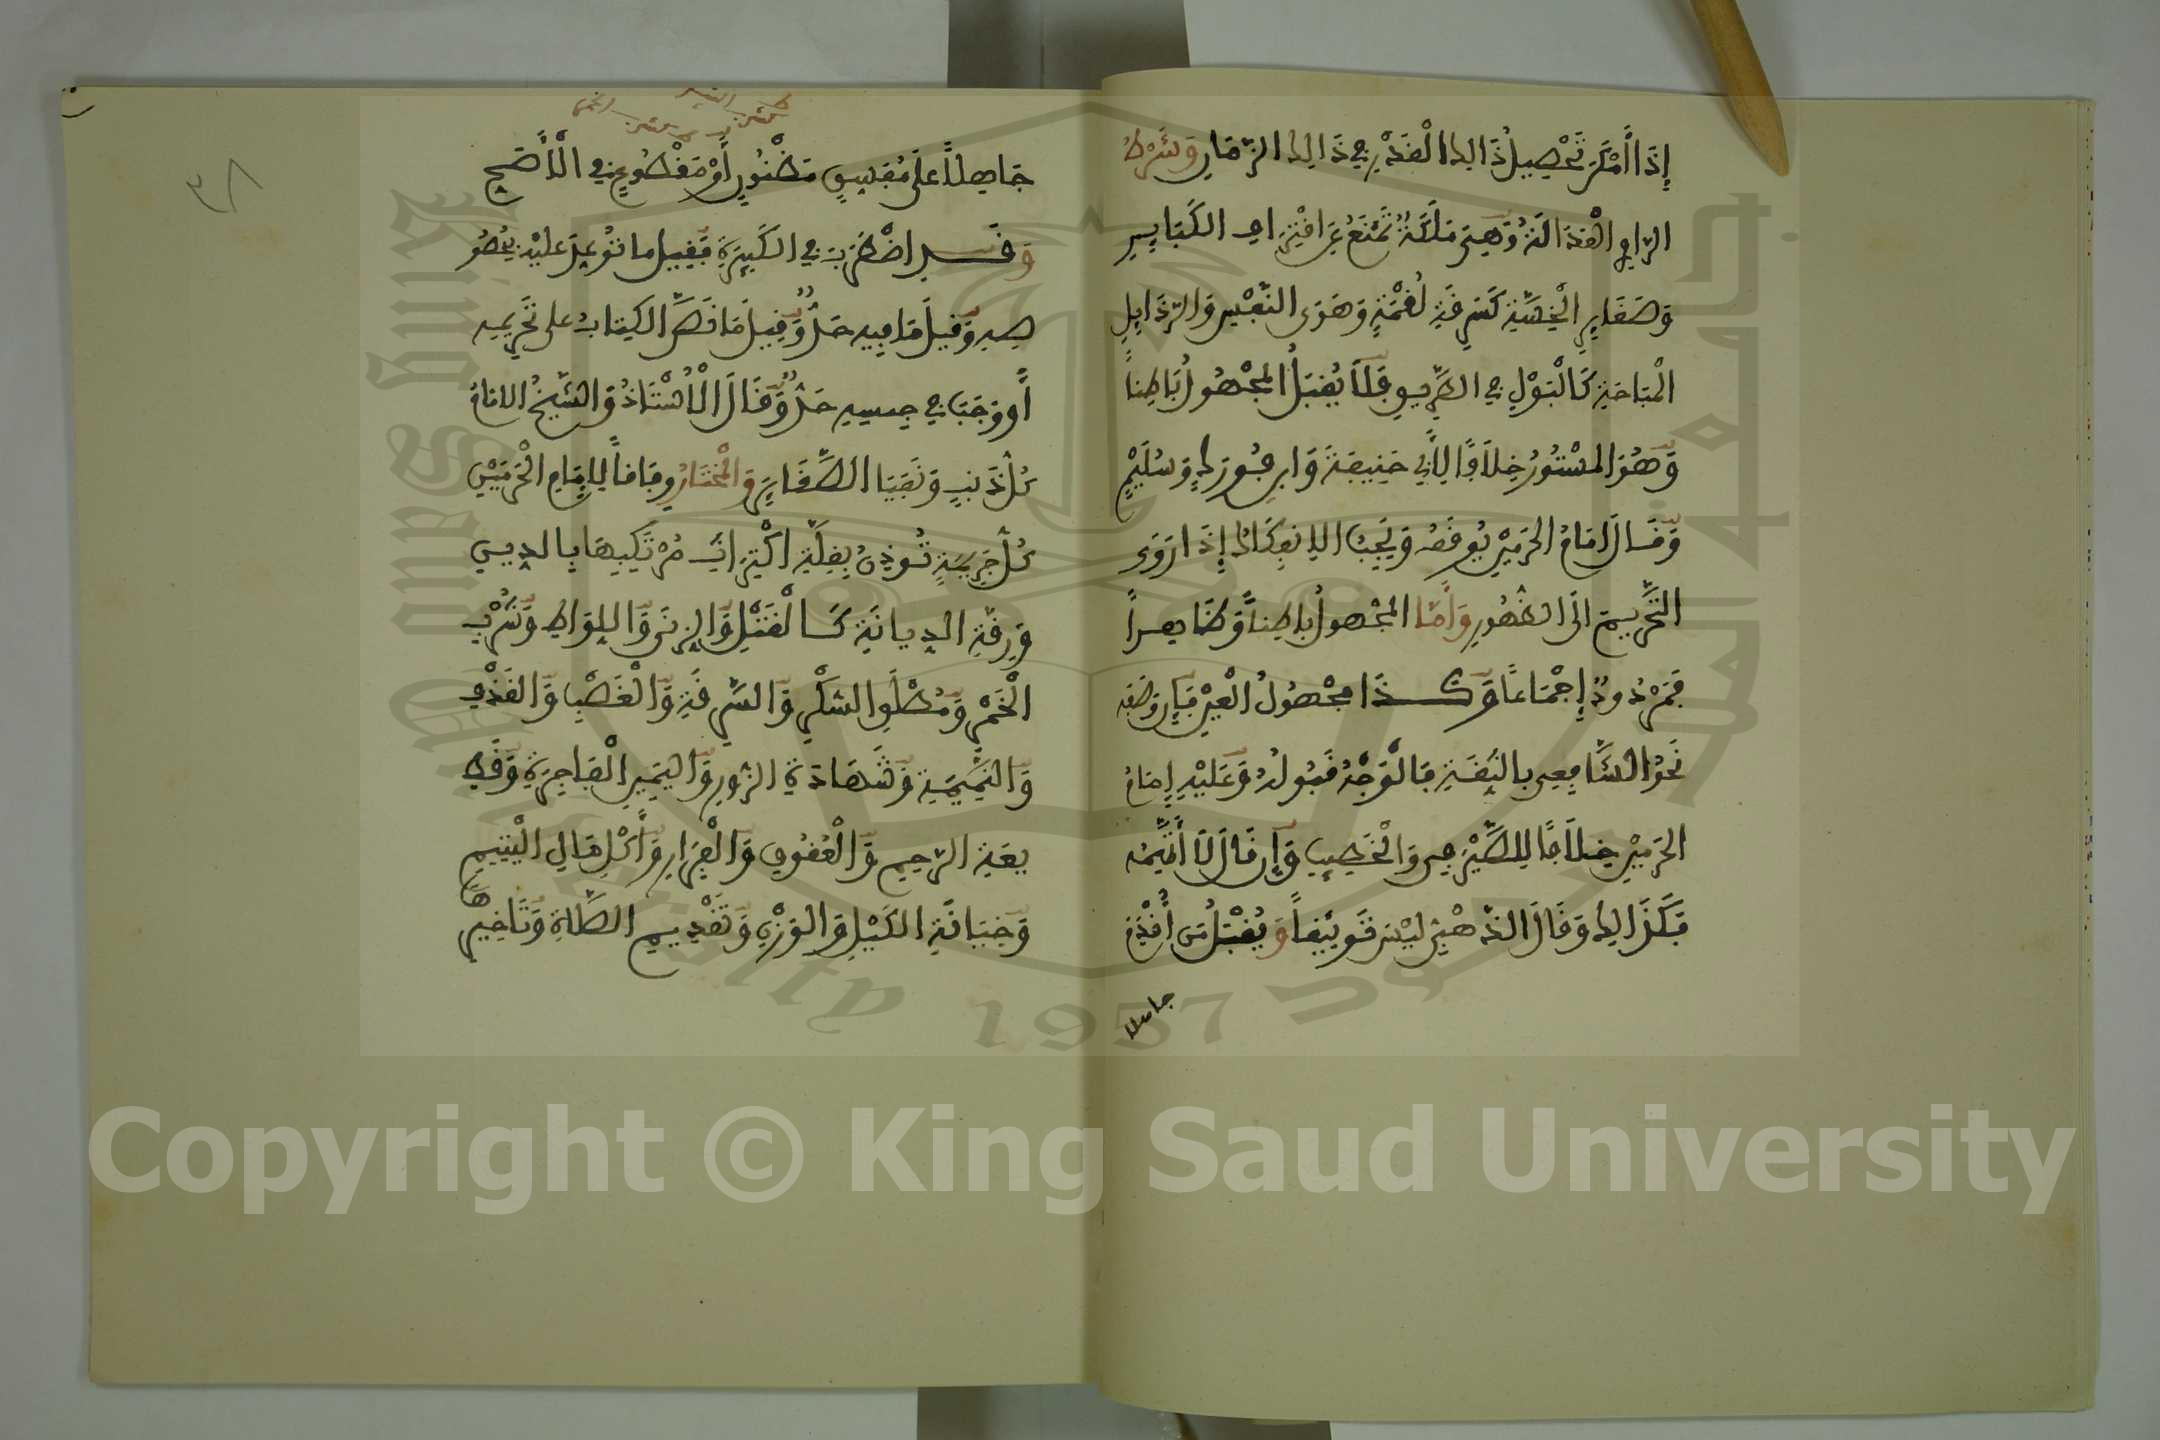 إِذَا أَمْكَنَ تَحْصِيلُ ذَالِكَ الْقَدْرِ فِي ذَالِكَ الزَّمَانِ وَشَرْطُ
الرَّاوِي الْعَدَالَةُ وَهِيَ مَلَكَةٌ تَمْنَعُ عَنِ اقْتِرَافِ الْكَبَايِرِ
وَصَغَايِرِ الْخِسَّةِ كَسَرِقَةِ لُقْمَةٍ وَهَوَى النَّفْسِ وَالرَّذَايِلِ
الْمُبَاحَةِ كَالْبَوْلِ فِي الطَّرِيقِ فَلَا يُقْبَلُ الْمَجْهُولُ بَاطِناً
وَهُوَ الْمَسْتُورُ خِلَافًا لِأَبِي حَنِيفَةَ وَابْنِ فُورَكٍ وَسُلَيْمٍ
وَقَالَ إِمَامُ الْحَرَمَيْنِ يُوقَفُ وَيَجِبُ الِانْكِفَافُ إِذَا رَوَى
التَّحْرِيمَ إِلَى الظُّهُورِ وَأَمَّا الْمَجْهُولُ بَاطِناً وَظَاهِراً
فَمَرْدُودٌ إِجْمَاعًا وَكَذَا مَجْهُولُ الْعَيْنِ فَإِنْ وَصَفَهُ
نَحْوُ الشَّافِعِي بِالثِّقَةِ فَالْوَجْهُ قَبُولُهُ وَعَلَيْهِ إِمَامُ
الْحَرَمَيْنِ خِلَافًا لِلصَّيْرَفِي وَالْخَطِيبِ وَإِنْ قَالَ لَا أَتَّهِمُهُ
فَكَذَالِكَ وَقَالَ الذَّهَبِيُّ لَيْسَ تَوْثِيقاً وَيُقْبَلُ مَنْ أَقْدَمَ
جاهلا
جَاهِلاً عَلَى مُفَسِّقٍ مَظْنُونٍ أَوْ مَقْطُوعٍ فِي الْأَصَحِّ
وَقَدِ اضْطُرِبَ فِي الْكَبِيرَةِ فَقِيلَ مَا تُوُعِّدَ عَلَيْهِ بِخُصُو
صِهِ وَقِيلَ مَا فِيهِ حَدٌّ وَقِيلَ مَا نَصَّ الْكِتَابُ عَلَى تَحْرِيمِهِ
أَوْ وَجَبَ فِي جِنْسِهِ حَدٌّ وَقَالَ الْأُسْتَاذُ وَالشَّيْخُ الْإِمَامُ
كُلُّ ذَنْبٍ وَنَفَيَا الصَّغَايِرَ وَالْمُخْتَارُ وِفَاقاً لِإِمَامِ الْحَرَمَيْنِ
كُلُّ جَرِيمَةٍ تُوذِنُ بِقِلَّةِ اكْتِرَاثِ مُرْتَكِبِهَا بِالدِّينِ
وَرِقَّةِ الدِّيَانَةِ كَالْقَتْلِ وَالزِّنَى وَاللِّوَاطِ وَشُرْبِ
الْخَمْرِ وَمُطْلَقِ السُّكْرِ وَالسَّرِقَةِ وَالْغَصْبِ وَالْقَذْفِ
وَالنَّمِيمَةِ وَشَهَادَةِ الزُّورِ وَالْيَمِينِ الْفَاجِرَةِ وَقَطِ
يعَةِ الرَّحِمِ وَالْعُقُوقِ وَالْفِرَارِ وَأَكْلِ مَالِ الْيَتِيمِ
وَخِيَانَةِ الْكَيْلِ وَالْوَزْنِ وَتَقْدِيمِ الصَّلَاةِ وَتَأْخِيرِهَا
٣٨
Copyright © King Saud University